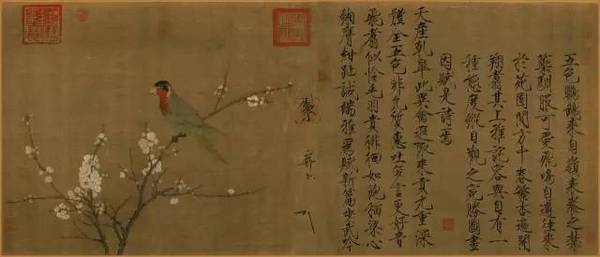 五色鸚鵡來自嶺表養之禁
籞馴服可愛飛鳴自適往來
於苑囿間方中春繁杏遍開
翔翥其上雅詫容與自有一
種態度縱目觀之宛勝圖畫
因賦是詩焉
天產乾皐此異禽遐陬來貢九重深
體全五色非凡質惠吐多言更好音
飛翥似憐毛羽貴徘徊如飽稻粱心
緗膺紺趾誠端雅為賦新篇步武吟